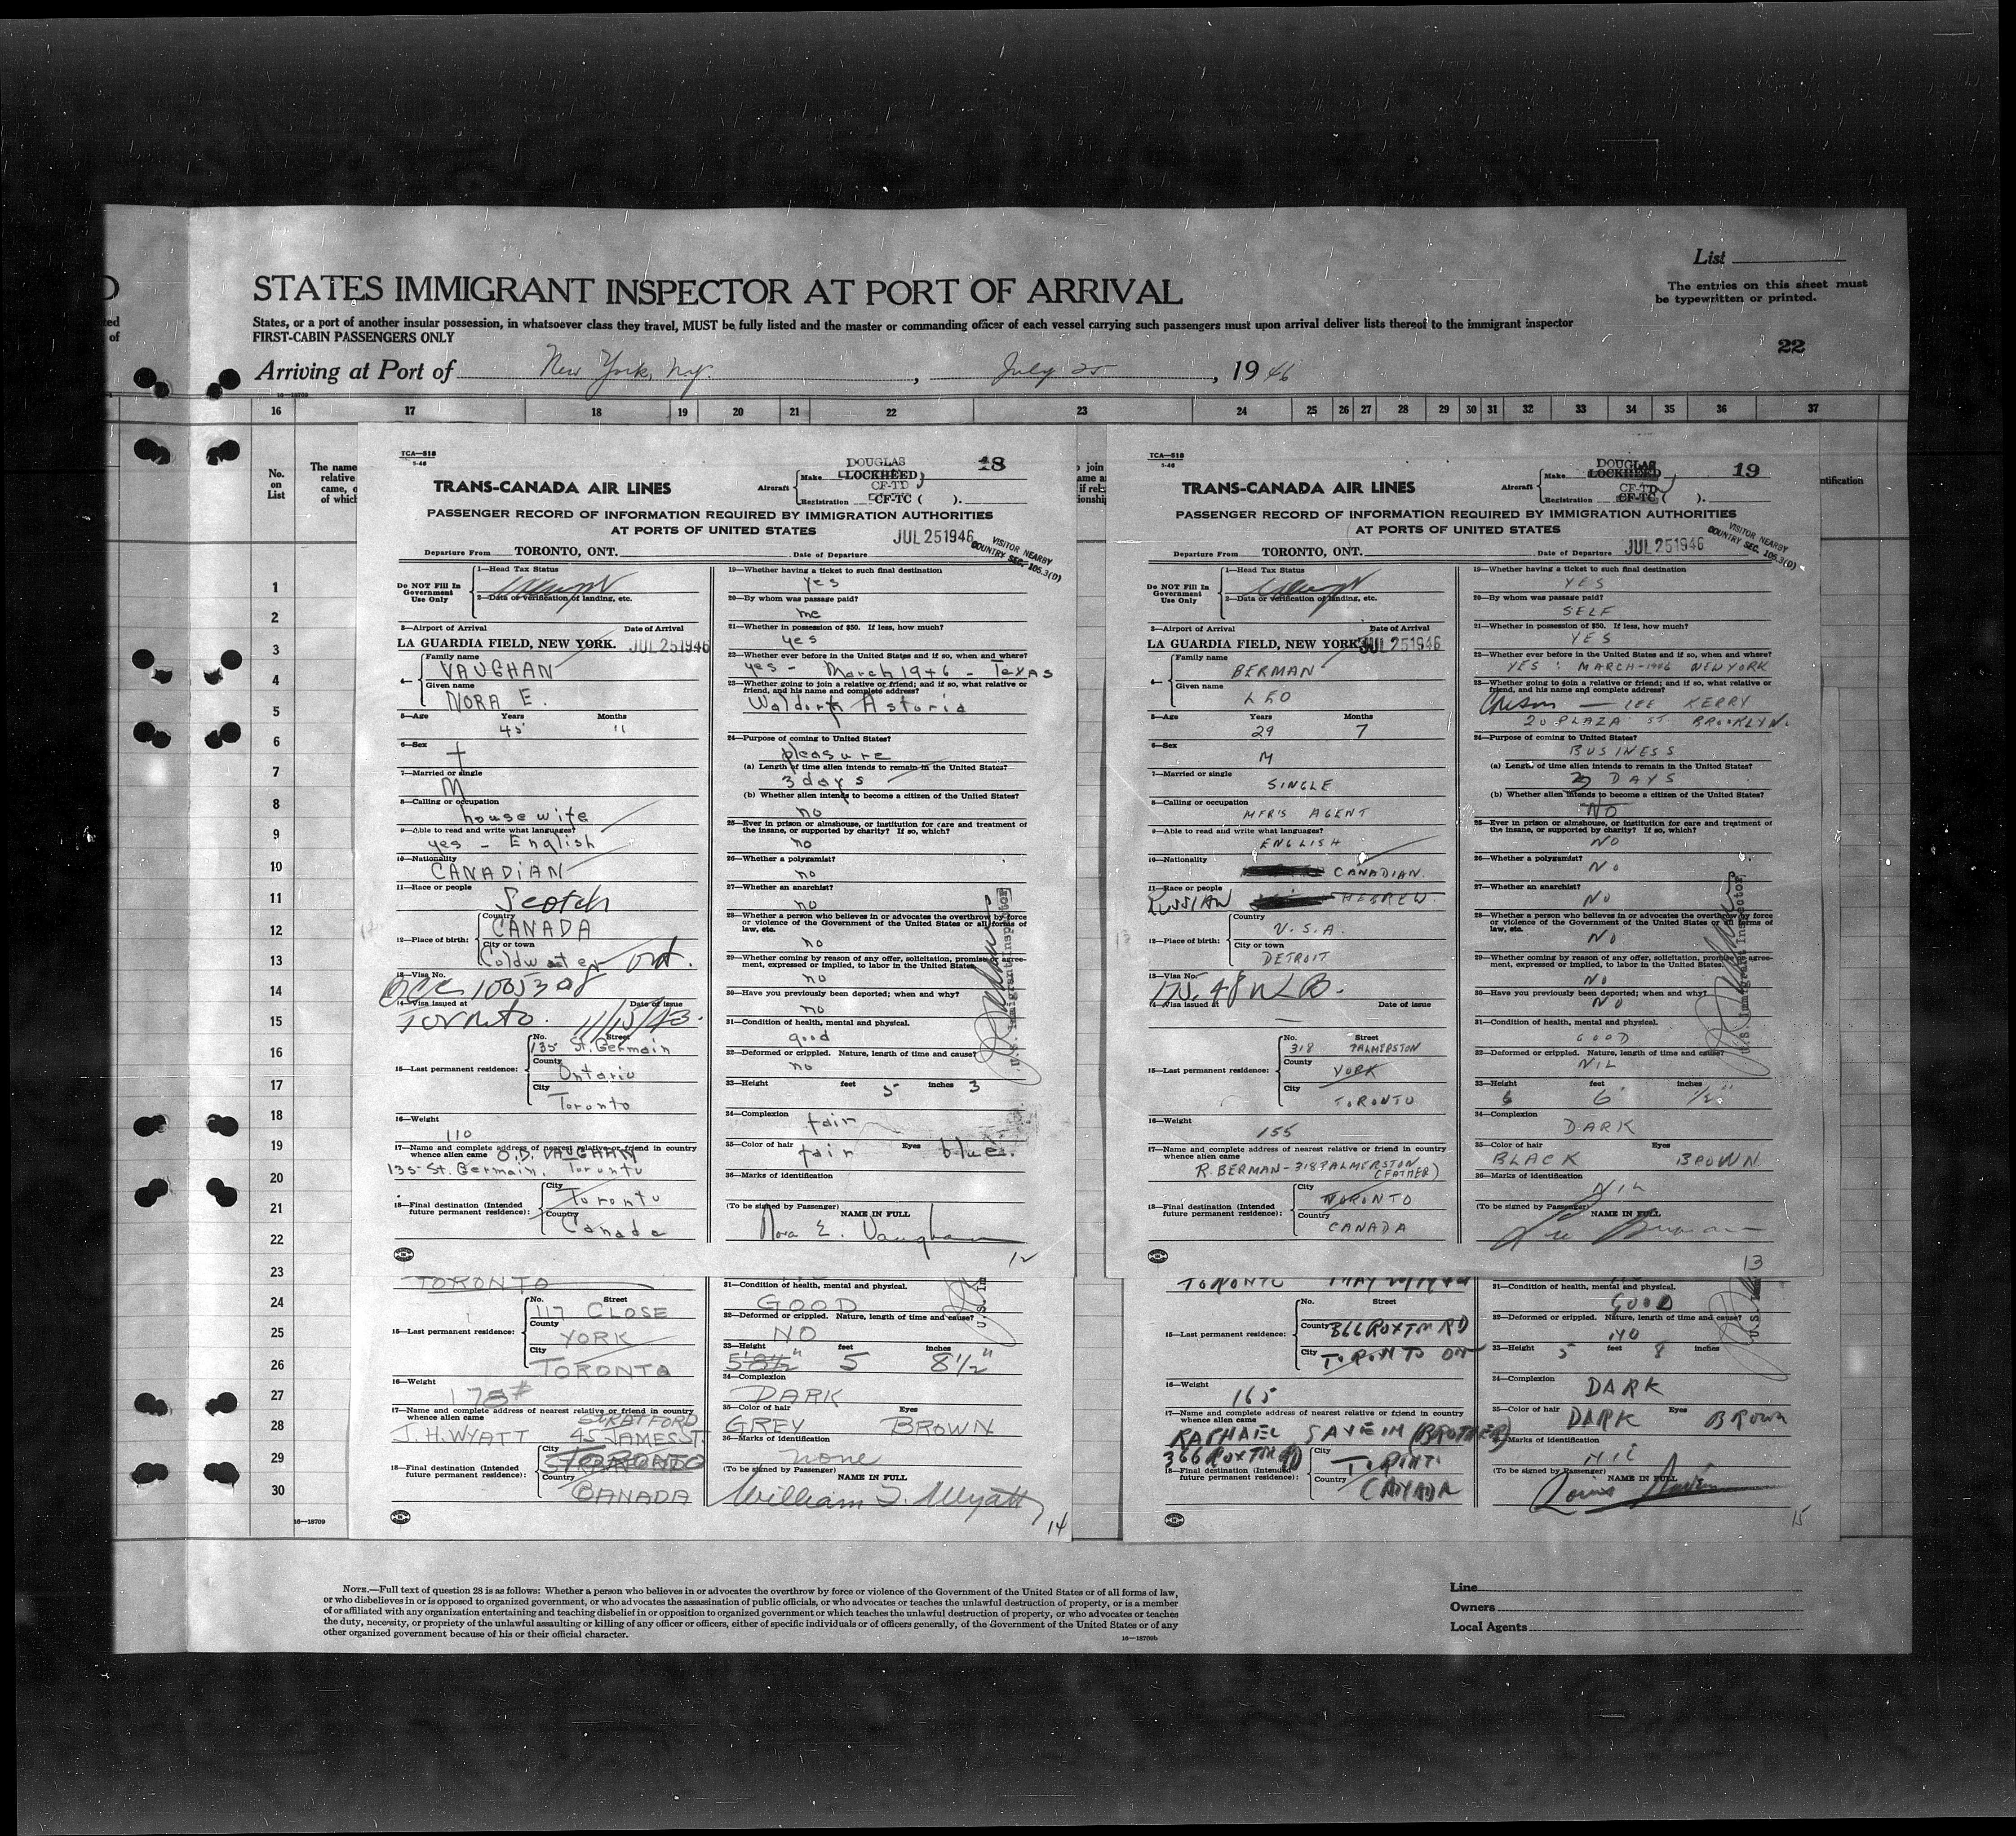 List
The entries on this sheet must
be typewritten or printed.
STATES IMMIGRANT INSPECTOR AT PORT OF ARRIVAL
States, or a port of another insular possession, in whatsoever class they travel, MUST be fully listed and the master or commanding officer of each vessel carrying such passengers must upon arrival deliver lists thereof to the immigrant inspector
FIRST-CABIN PASSENGERS ONLY
22
Arriving at Port of New York, N.Y. , July 25 , 1946
16-18709
16 17 18 19 20 21 22 23 24 25 26 27 28 29 30 31 32 33 34 35 36 37
No. on List
The name
relative
came, o
of which
TCA-518
5-46
DOUGLAS
Aircraft Make (LOCKHEED)
CF-TD
Registration CF-TC ( ).
18
TRANS-CANADA AIR LINES
PASSENGER RECORD OF INFORMATION REQUIRED BY IMMIGRATION AUTHORITIES
AT PORTS OF UNITED STATES
JUL 25 1946
VISITOR NEARBY
COUNTRY SEC. 105.3(D)
Departure From TORONTO, ONT. Date of Departure
Do NOT Fill In
Government
Use Only
1—Head Tax Status
2—Data or verification of landing, etc.
3—Airport of Arrival Date of Arrival
LA GUARDIA FIELD, NEW YORK. JUL 25 1946
4— Family name
VAUGHAN
Given name
NORA E.
5—Age Years Months
45 11
6—Sex
f
7—Married or single
M
8—Calling or occupation
housewife
9—Able to read and write what languages?
yes - English
10—Nationality
CANADIAN
11—Race or people
Scotch
12—Place of birth: Country
CANADA
City or town
Coldwater Ont.
13—Visa No.
14—Visa issued at Date of issue
Toronto. 11/15/43.
15—Last permanent residence: No. Street
135 St. Germain
County
Ontario
City
Toronto
16—Weight
110
17—Name and complete address of nearest relative or friend in country
whence alien came O.D. VAUGHAN
135 St. Germain, Toronto
18—Final destination (Intended
future permanent residence):
City
Toronto
Country
Canada
19—Whether having a ticket to such final destination
yes
20—By whom was passage paid?
me
21—Whether in possession of $50. If less, how much?
yes
22—Whether ever before in the United States and if so, when and where?
yes - March 1946 - Texas
23—Whether going to join a relative or friend; and if so, what relative or
friend, and his name and complete address?
Waldorf Astoria
24—Purpose of coming to United States?
pleasure
(a) Length of time alien intends to remain in the United States?
3 days
(b) Whether alien intends to become a citizen of the United States?
no
25—Ever in prison or almshouse, or institution for care and treatment of
the insane, or supported by charity? If so, which?
no
26—Whether a polygamist?
no
27—Whether an anarchist?
no
28—Whether a person who believes in or advocates the overthrow by force
or violence of the Government of the United States or all forms of
law, etc.
no
29—Whether coming by reason of any offer, solicitation, promise or agree-
ment, expressed or implied, to labor in the United States.
no
30—Have you previously been deported; when and why?
no
31—Condition of health, mental and physical.
good
32—Deformed or crippled. Nature, length of time and cause?
no
33—Height feet 5 inches 3
34—Complexion
fair
35—Color of hair Eyes
fair blue.
36—Marks of identification
(To be signed by Passenger) NAME IN FULL
Nora E. Vaughan
U.S. Immigrant Inspector
12
TCA-518
5-46
DOUGLAS
Aircraft Make LOCKHEED
CF-TD
Registration CF-TC ( ).
19
TRANS-CANADA AIR LINES
PASSENGER RECORD OF INFORMATION REQUIRED BY IMMIGRATION AUTHORITIES
AT PORTS OF UNITED STATES
JUL 25 1946
VISITOR NEARBY
COUNTRY SEC. 105.3(D)
Departure From TORONTO, ONT. Date of Departure
Do NOT Fill In
Government
Use Only
1—Head Tax Status
2—Data or verification of landing, etc.
3—Airport of Arrival Date of Arrival
LA GUARDIA FIELD, NEW YORK. JUL 25 1946
4— Family name
BERMAN
Given name
LEO
5—Age Years Months
29 7
6—Sex
M
7—Married or single
SINGLE
8—Calling or occupation
MFR'S AGENT
9—Able to read and write what languages?
ENGLISH
10—Nationality
CANADIAN.
11—Race or people
RUSSIAN HEBREW
12—Place of birth: Country
U.S.A.
City or town
DETROIT
13—Visa No.
14—Visa issued at Date of issue
15—Last permanent residence: No. Street
318 PALMERSTON
County
YORK
City
TORONTO
16—Weight
155
17—Name and complete address of nearest relative or friend in country
whence alien came
R. BERMAN - 318 PALMERSTON
(FATHER)
18—Final destination (Intended
future permanent residence):
City
TORONTO
Country
CANADA
19—Whether having a ticket to such final destination
YES
20—By whom was passage paid?
SELF
21—Whether in possession of $50. If less, how much?
YES
22—Whether ever before in the United States and if so, when and where?
YES : MARCH-1946 NEW YORK
23—Whether going to join a relative or friend; and if so, what relative or
friend, and his name and complete address?
— LEE KERRY
20 PLAZA ST BROOKLYN.
24—Purpose of coming to United States?
BUSINESS
(a) Length of time alien intends to remain in the United States?
DAYS
(b) Whether alien intends to become a citizen of the United States?
NO
25—Ever in prison or almshouse, or institution for care and treatment of
the insane, or supported by charity? If so, which?
NO
26—Whether a polygamist?
NO
27—Whether an anarchist?
NO
28—Whether a person who believes in or advocates the overthrow by force
or violence of the Government of the United States or all forms of
law, etc.
NO
29—Whether coming by reason of any offer, solicitation, promise or agree-
ment, expressed or implied, to labor in the United States.
NO
30—Have you previously been deported; when and why?
NO
31—Condition of health, mental and physical.
GOOD
32—Deformed or crippled. Nature, length of time and cause?
NIL
33—Height feet inches
6 6 1/2"
34—Complexion
DARK
35—Color of hair Eyes
BLACK BROWN
36—Marks of identification
NIL
(To be signed by Passenger) NAME IN FULL
Leo Berman
U.S. Immigrant Inspector
13
TORONTO
15—Last permanent residence: No. Street
117 CLOSE
County
YORK
City
TORONTO
16—Weight
178#
17—Name and complete address of nearest relative or friend in country
whence alien came STRATFORD
J.H. WYATT 45 JAMES ST.
18—Final destination (Intended
future permanent residence):
City
TORONTO
Country
CANADA
31—Condition of health, mental and physical.
GOOD
32—Deformed or crippled. Nature, length of time and cause?
NO
33—Height feet inches
5'8½" 5 8½"
34—Complexion
DARK
35—Color of hair Eyes
GREY BROWN
36—Marks of identification
none
(To be signed by Passenger) NAME IN FULL
William J. Wyatt
14
TORONTO
15—Last permanent residence: No. Street
County 366 ROXTON RD
City TORONTO ON
16—Weight
165
17—Name and complete address of nearest relative or friend in country
whence alien came
RAPHAEL (BROTHER)
366 ROXTON RD
18—Final destination (Intended
future permanent residence):
City
TORONTO
Country
CANADA
31—Condition of health, mental and physical.
GOOD
32—Deformed or crippled. Nature, length of time and cause?
NO
33—Height 5 feet 8 inches
34—Complexion
DARK
35—Color of hair DARK Eyes BROWN
36—Marks of identification
NIL
(To be signed by Passenger) NAME IN FULL
Louis
15
1
2
3
4
5
6
7
8
9
10
11
12
13
14
15
16
17
18
19
20
21
22
23
24
25
26
27
28
29
30
16-18709
NOTE.—Full text of question 28 is as follows: Whether a person who believes in or advocates the overthrow by force or violence of the Government of the United States or of all forms of law,
or who disbelieves in or is opposed to organized government, or who advocates the assassination of public officials, or who advocates or teaches the unlawful destruction of property, or is a member
of or affiliated with any organization entertaining and teaching disbelief in or opposition to organized government or which teaches the unlawful destruction of property, or who advocates or teaches
the duty, necessity, or propriety of the unlawful assaulting or killing of any officer or officers, either of specific individuals or of officers generally, of the Government of the United States or of any
other organized government because of his or their official character.
16-18709b
Line
Owners
Local Agents